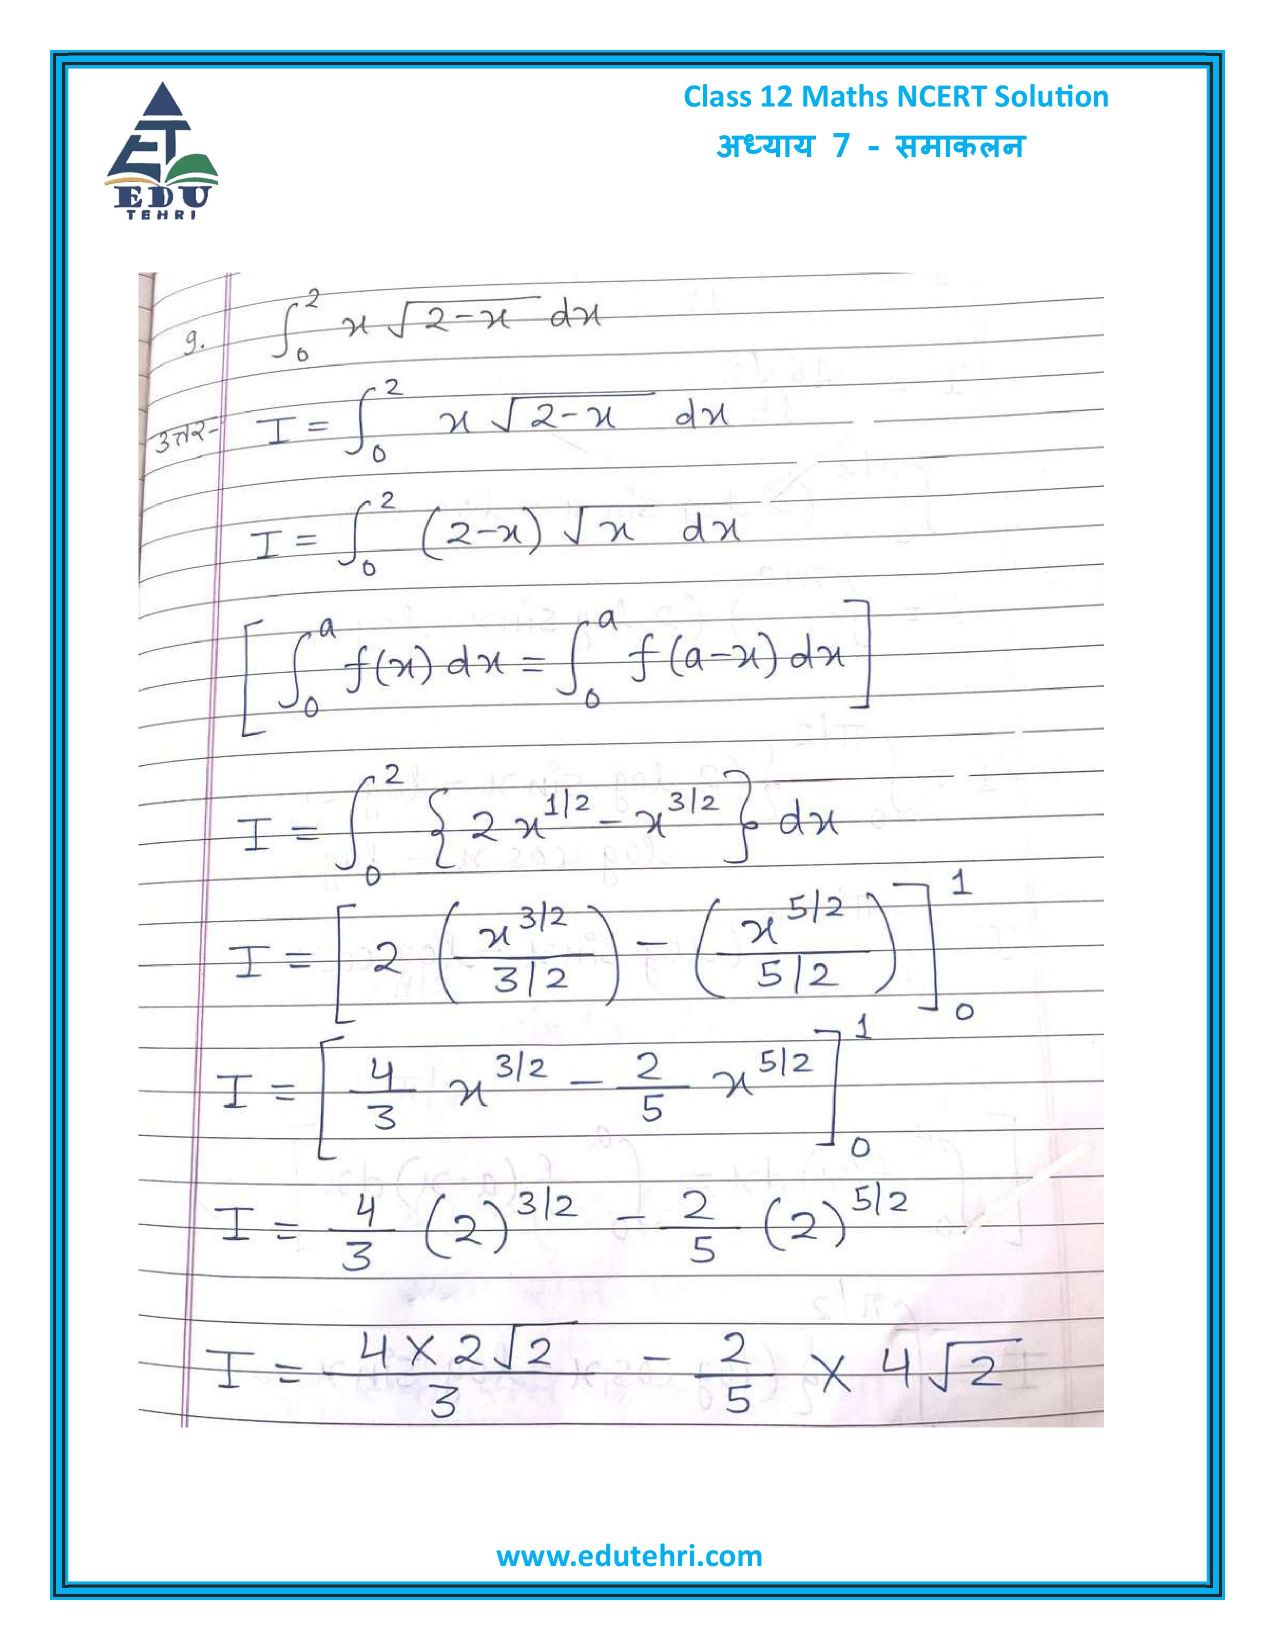 Class 12 Maths NCERT Solution
अध्याय 7 - समाकलन
ET
EDU
TEHRI
9. ∫₀² x √(2-x) dx
उत्तर- I = ∫₀² x √(2-x) dx
I = ∫₀² (2-x) √x dx
[∫₀ᵃ f(x) dx = ∫₀ᵃ f(a-x) dx]
I = ∫₀² {2 x^1/2 - x^3/2} dx
I = [2 (x^3/2 / 3/2) - (x^5/2 / 5/2)]₀¹
I = [4/3 x^3/2 - 2/5 x^5/2]₀¹
I = 4/3 (2)^3/2 - 2/5 (2)^5/2
I = 4×2√2 / 3 - 2/5 × 4√2
www.edutehri.com